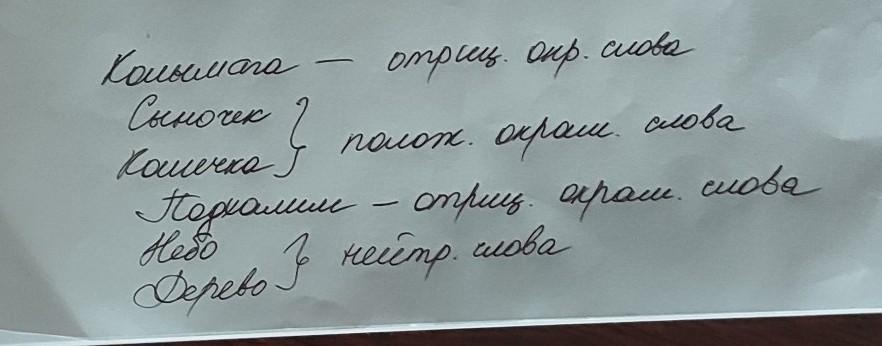 Колымага — отриц. окр. слова
Сыночек
Кошечка } полож. окраш. слова
Подхалим — отриц. окраш. слова
Небо
Дерево } нейтр. слова